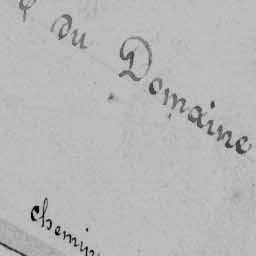 du Domaine
chemin